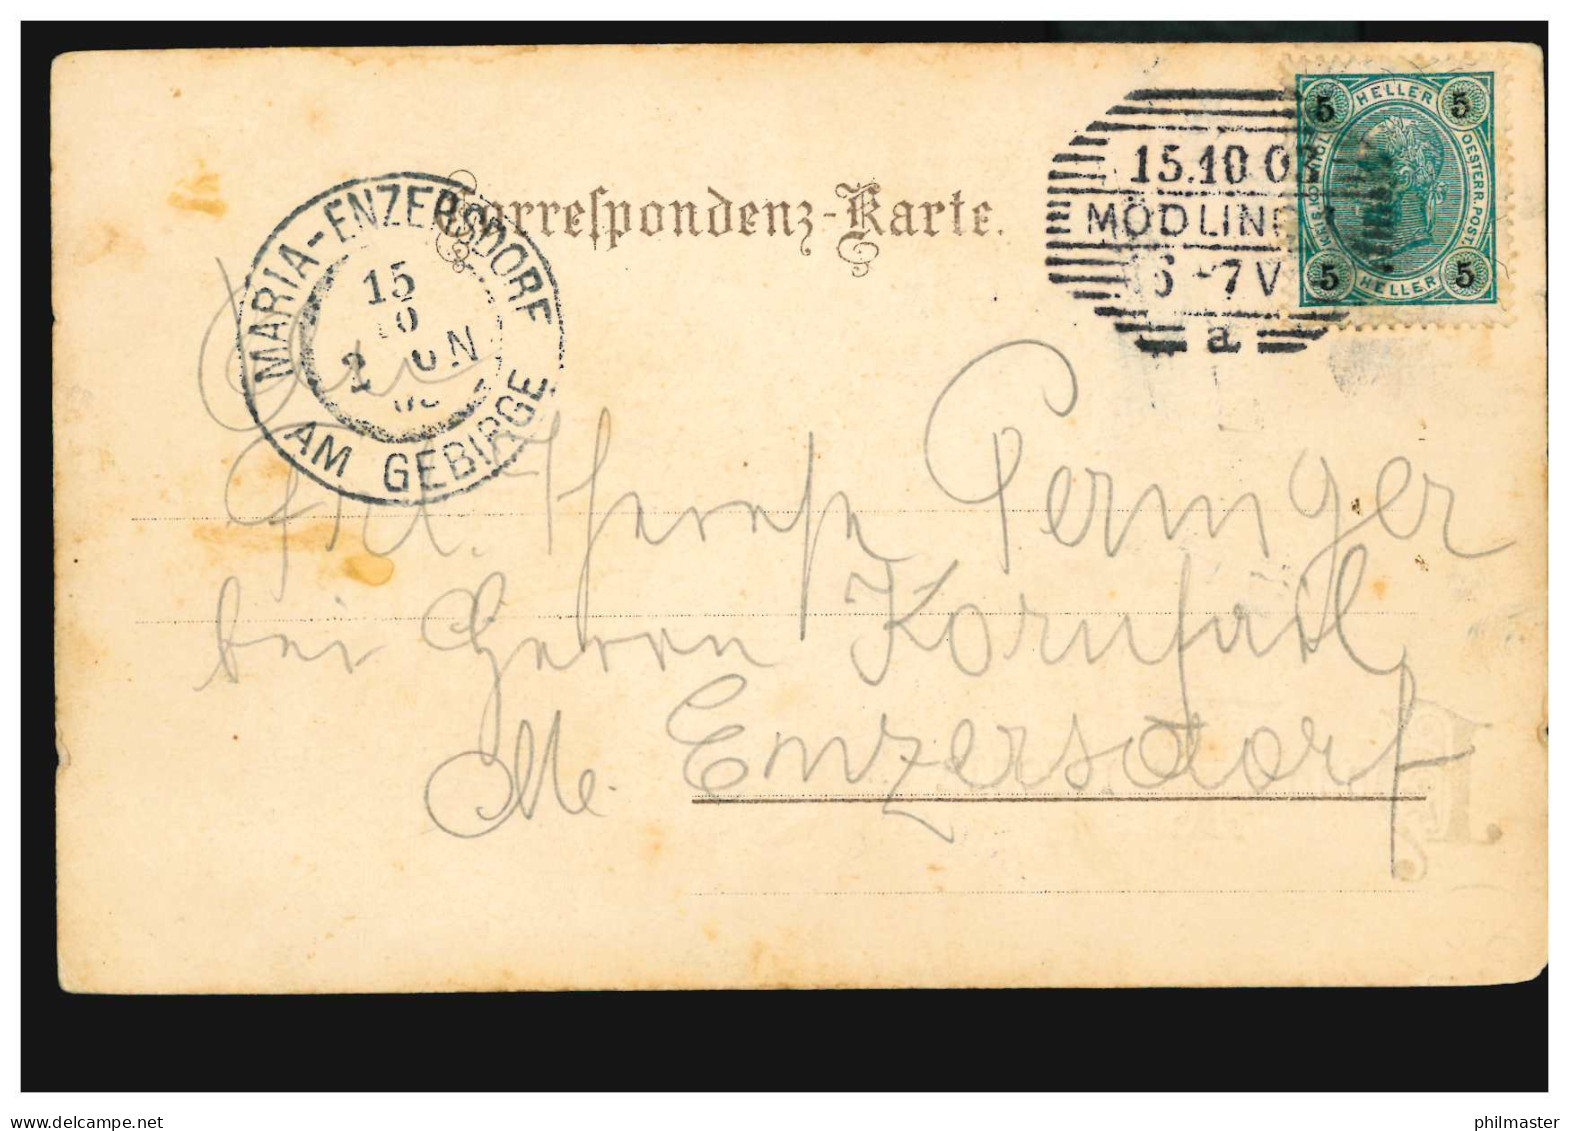 Correspondenz-Karte.
15.10 0
MÖDLING
6-7 V
a
5 HELLER 5
KAIS. KÖNIGL. OESTERR. POST.
5 HELLER 5
MARIA-ENZERSDORF
15
10
2 ON
AM GEBIRGE
An
Frl. Therese Peringer
bei Herrn Kornfeil
M. Enzersdorf
www.delcampe.net
philmaster